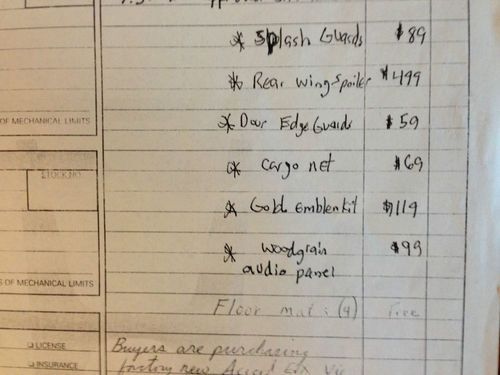 * Splash Guards $89
* Rear wing spoiler $499
* Door Edge Guards $59
OF MECHANICAL LIMITS
* Cargo net $69
STOCK NO.
* Gold Emblem kit $119
* Woodgrain $99
audio panel
S OF MECHANICAL LIMITS
Floor mats (4) Free
LICENSE
Buyers are purchasing
INSURANCE
factory new Accord